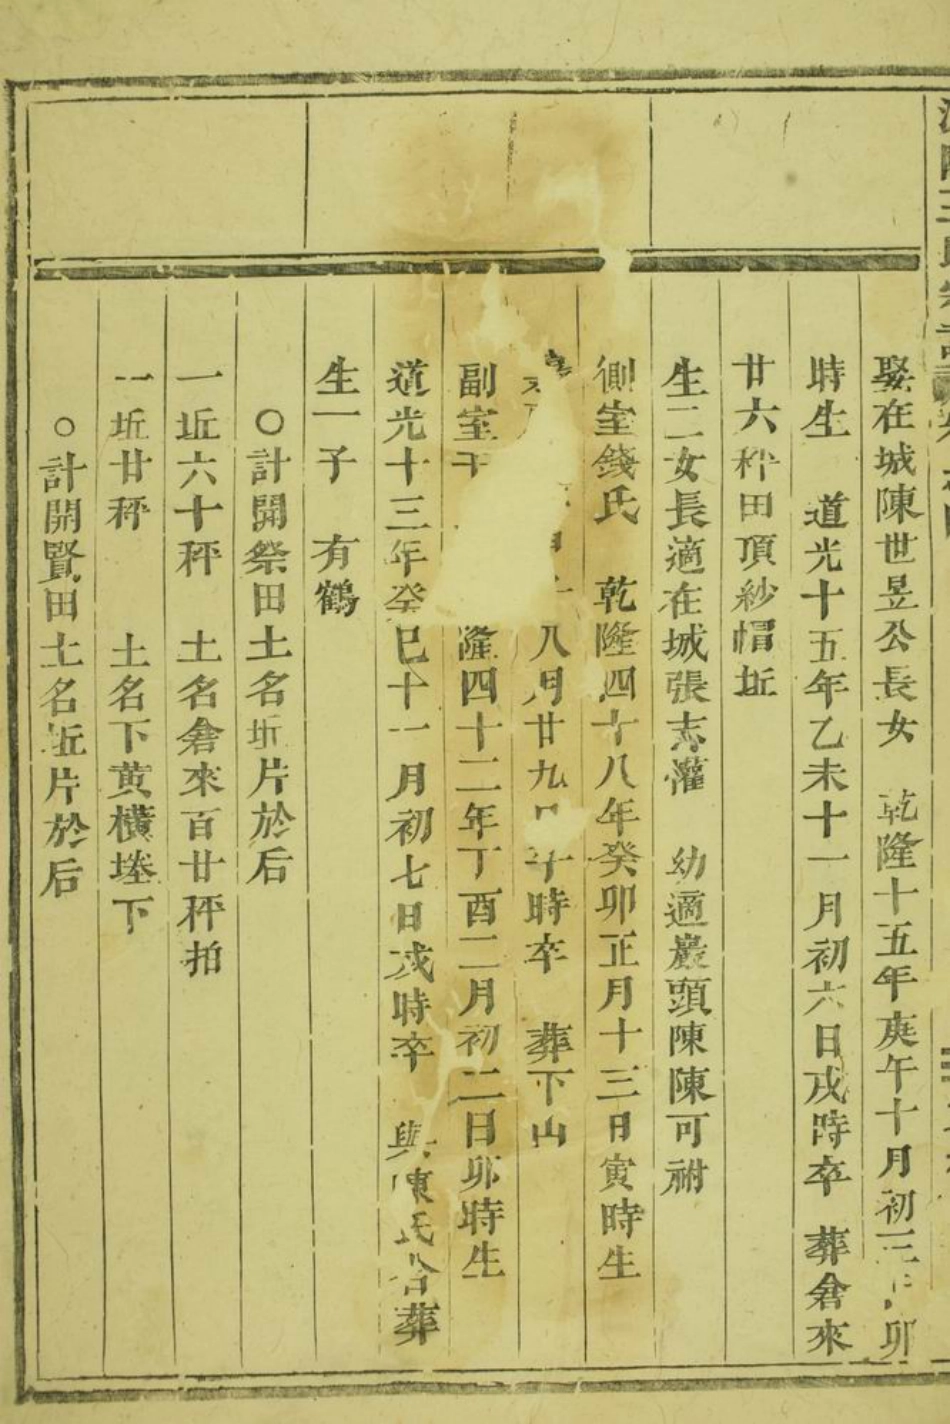 王氏宗譜卷
娶在城陳世昱公長女 乾隆十五年庚午十月初三 卯
時生 道光十五年乙未十一月初六日戌時卒 葬倉來
廿六秤田頂紗帽坵
生二女長適在城張志灌 幼適巖頭陳陳可祔
側室錢氏 乾隆四十八年癸卯正月十三日寅時生
八月廿九 時卒 葬下山
副室 隆四十二年丁酉二月初二日卯時生
道光十三年癸巳十一月初七日戌時卒 與陳氏合葬
生一子 有鶴
○計開祭田土名坵片於后
一坵六十秤 土名倉來百廿秤拍
一坵廿秤 土名下黄橫塋下
○計開賢田土名坵片於后